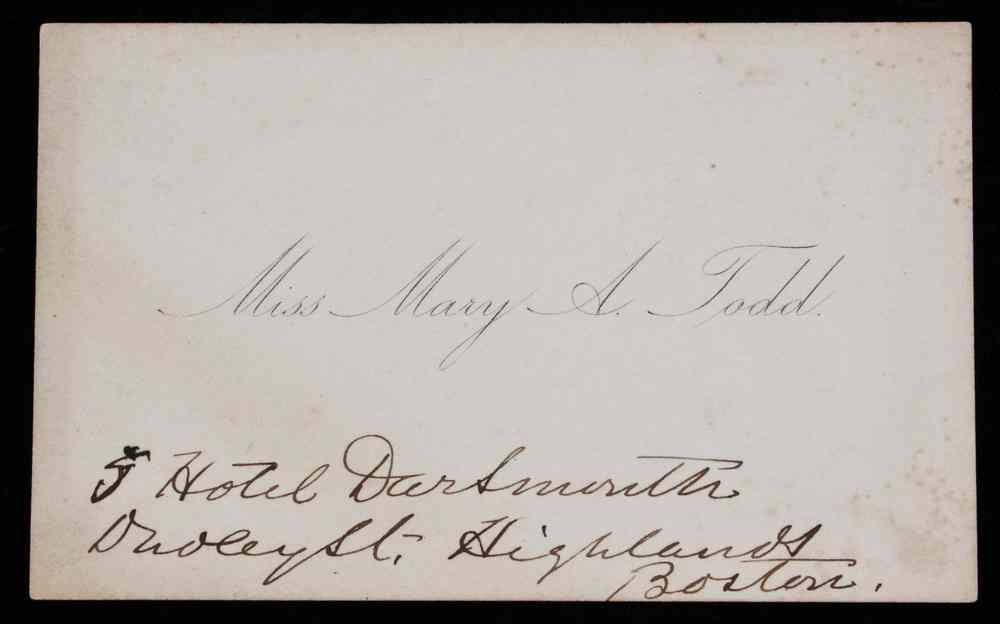 Miss Mary A. Todd.
5 Hotel Dartmouth
Dudley St. Highlands
Boston.